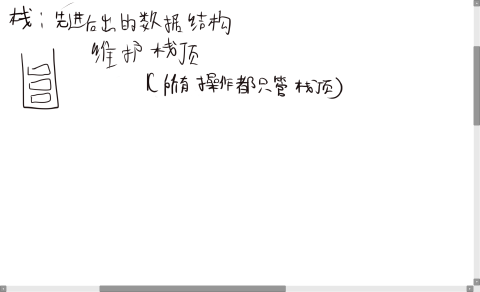 栈：先进后出的数据结构
维护栈顶
(所有操作都只管栈顶)